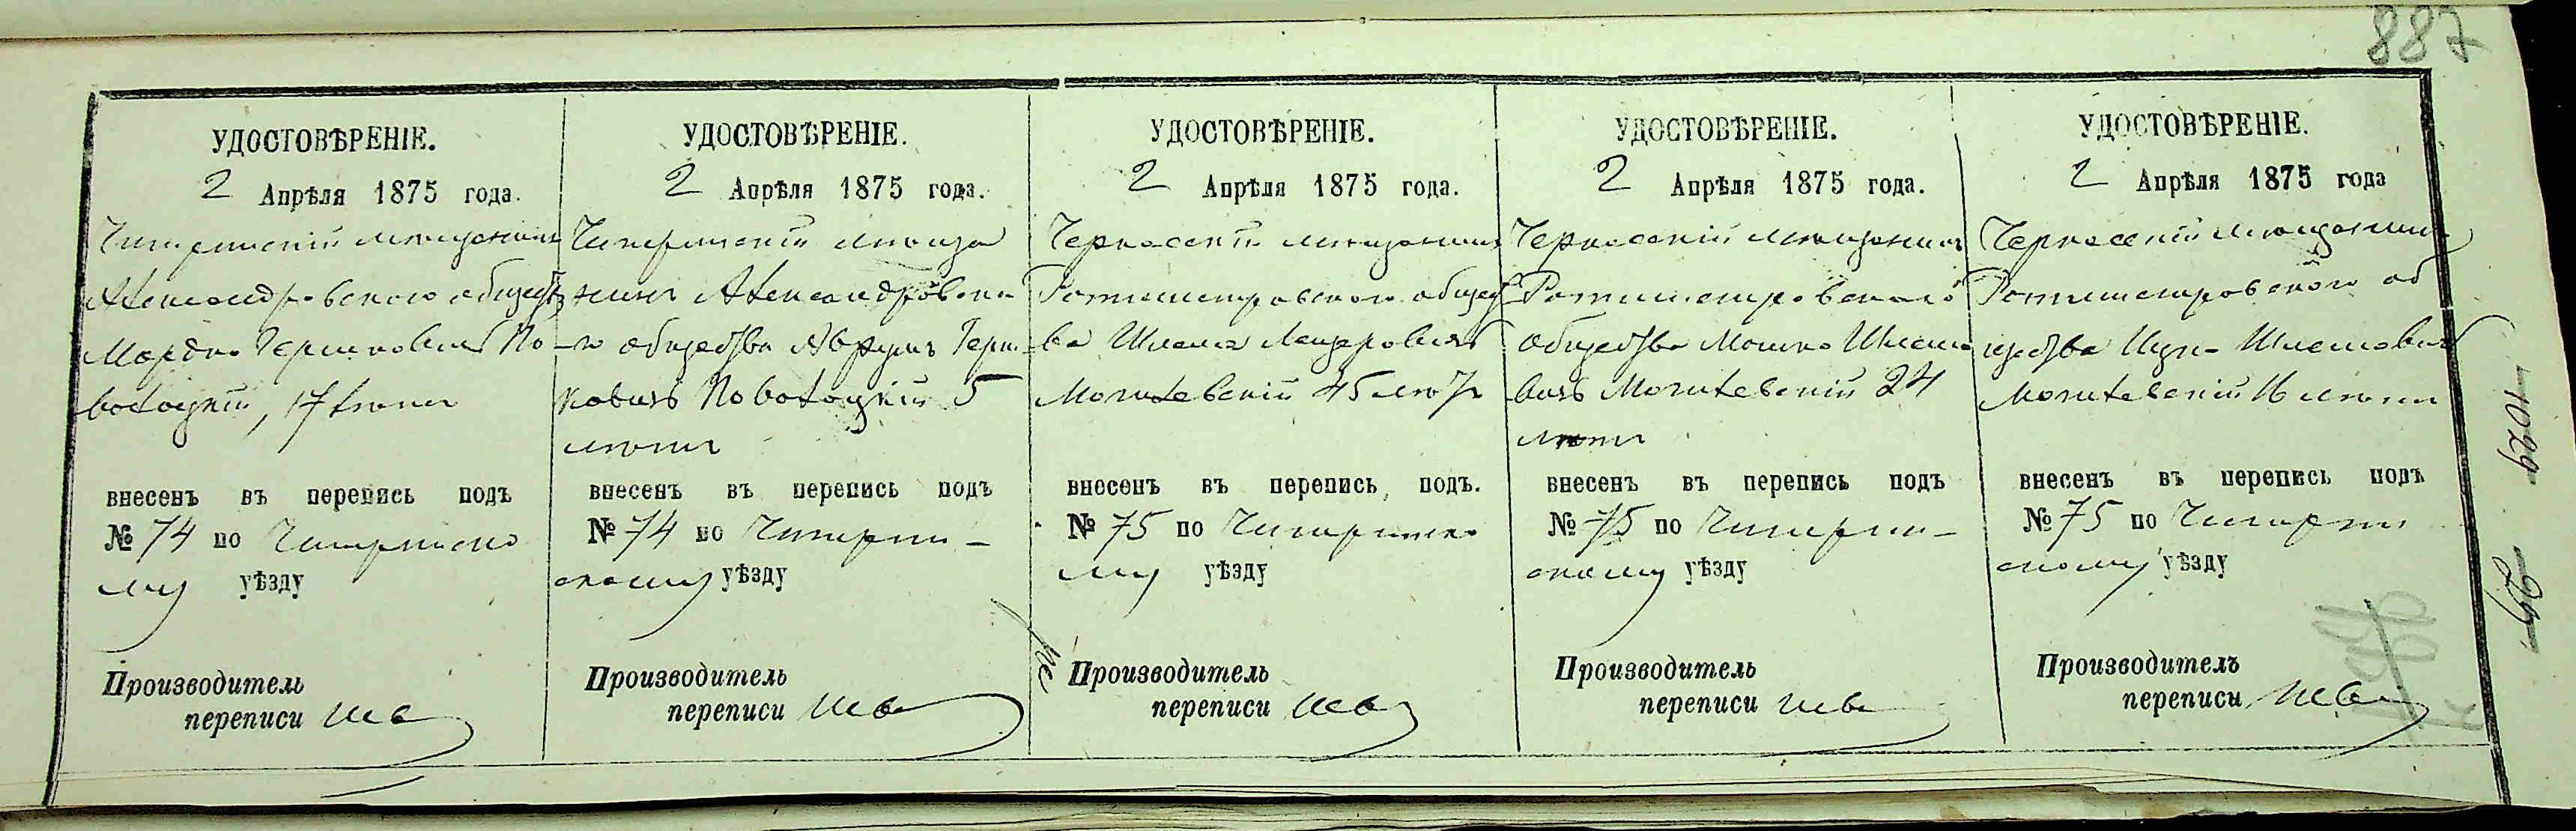 887
УДОСТОВѢРЕНІЕ.
2 Апрѣля 1875 года.
Чигиринскій мѣщанинъ
Александровского общест
Мордко Гершковичъ По
волоцкій, 17 лѣтъ
внесенъ въ перепись подъ
№ 74 по Чигиринско
му уѣзду
Производитель
переписи
УДОСТОВѢРЕНІЕ.
2 Апрѣля 1875 года.
Чигиринскій мѣща
нинъ Александровска
го общества Аврумъ Герш
ковичъ Поволоцкій 5
лѣтъ
внесенъ въ перепись подъ
№ 74 по Чигирин-
скому уѣзду
Производитель
переписи
УДОСТОВѢРЕНІЕ.
2 Апрѣля 1875 года.
Черкасскій мѣщанинъ
Ротмистровского общест
ва Шлема Лейзеровичъ
Могилевскій 45 лѣтъ
внесенъ въ перепись подъ.
№ 75 по Чигиринско
му уѣзду
Производитель
переписи
УДОСТОВѢРЕНІЕ.
2 Апрѣля 1875 года.
Черкасскій мѣщанинъ
Ротмистровского
общества Мошко Шлемо
вичъ Могилевскій 24
лѣтъ
внесенъ въ перепись подъ
№ 75 по Чигирин-
скому уѣзду
Производитель
переписи
УДОСТОВѢРЕНІЕ.
2 Апрѣля 1875 года
Черкасскій мѣщанинъ
Ротмистровского об
щества Ицко Шлемовичъ
Могилевскій 16 лѣтъ
внесенъ въ перепись подъ
№ 75 по Чигирин
скому уѣзду
Производитель
переписи
1029